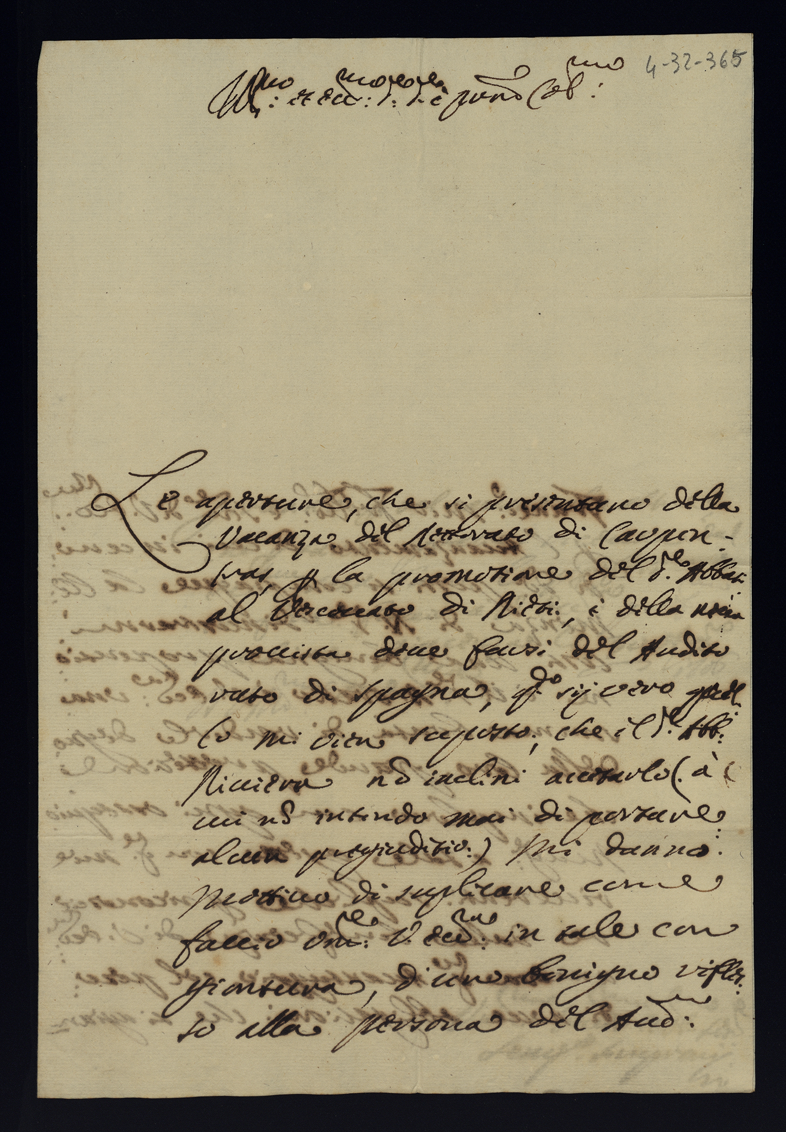 4-32-365
Ill.mo et Ecc.mo S.r S.r e pron Col.mo
Le aperture, che si presentano della
Vacanza del Rettorato di Carpen-
tras, p la promotione del S.re Abbati
al Vescovato di Rieti, e della nova
provista deve farsi del Audito
rato di Spagna, q.do sij vero quel
lo mi vien supposto, che il S.re Abb:
Riviera nõ inclini accetarlo (à
cui nõ intendo mai di portare
alcun pregiuditio.) Mi danno
Mottivo di suplicare come
faccio Um.te V. Ecc.mo in tale con
giontura, d'uno benigno rifles:
so alla persona del Aud: